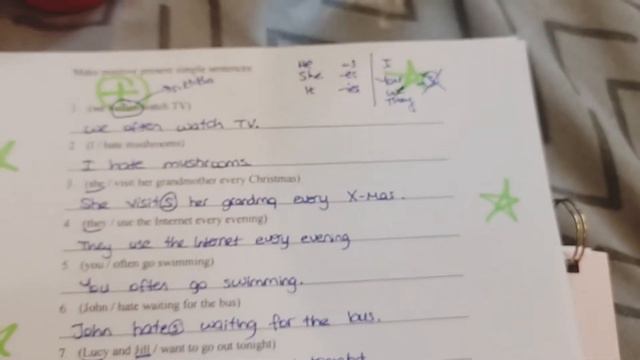 Make positive present simple sentences
He -s I
She -es you
It -ies we
They
1 (we / often / watch TV)
We often watch TV.
2 (I / hate mushrooms)
I hate mushrooms.
3 (she / visit her grandmother every Christmas)
She visits her grandma every X-Mas.
4 (they / use the Internet every evening)
They use the Internet every evening
5 (you / often go swimming)
You often go swimming.
6 (John / hate waiting for the bus)
John hates waiting for the bus.
7 (Lucy and Jill / want to go out tonight)
tonight